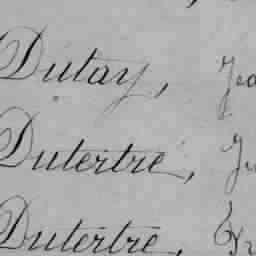 Dutay,
Dutertre,
Dutertre,